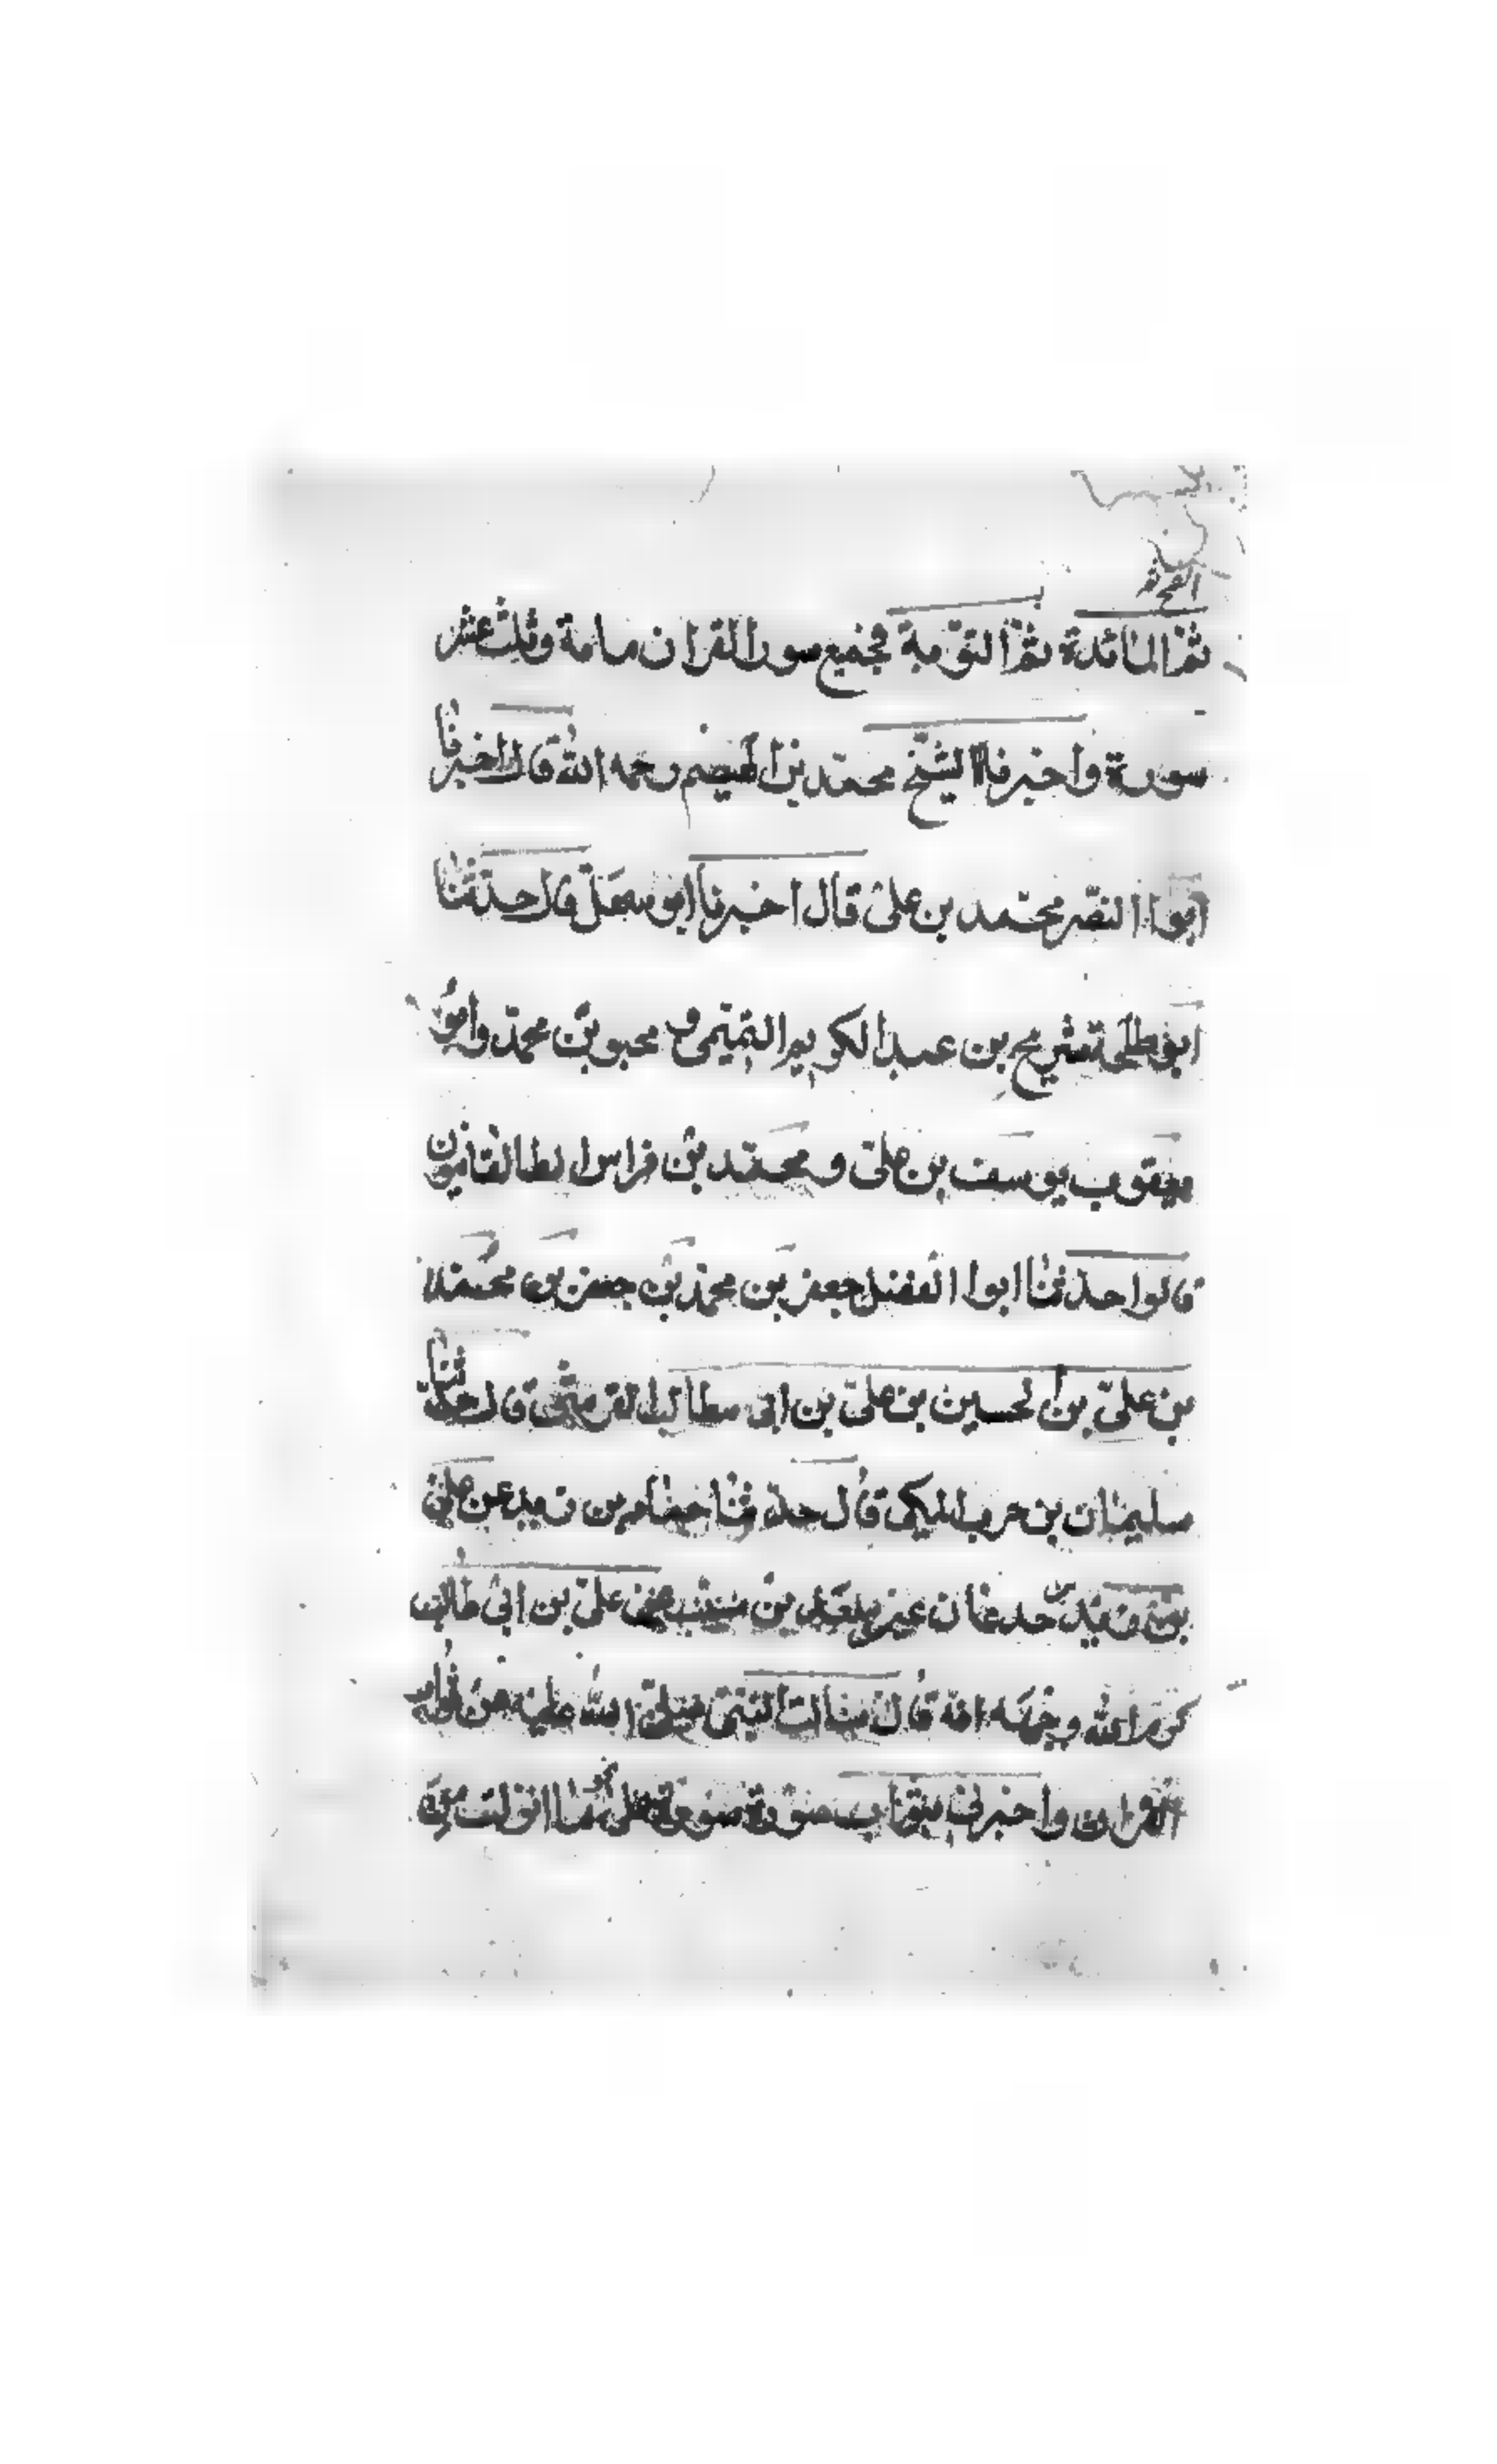 الفتح ثم
ثم المائدة ثم التوبة فجميع سور القران مامة وثلث عشر
سورة واخبرنا الشيخ محمد بن الهيضم رحمه الله قال اخبرنا
ابوا النصر محمد بن على قال اخبرنا ابو سهل قال حدثنا
ابو طلحة شريح بن عبد الكريم التميمى و محبوب بن محمد وابو
يعقوب يوسف بن على و محمد بن فراس الطالقانيون
قالوا حدثنا ابوا الفضل جعفر بن محمد بن جعفر بن محمد
بن على بن الحسين بن على بن ابى طالب القرشى قال حدثنا
سليمان بن حرب المكى قال حدثنا حماد بن زيد عن على
بن زيد جدعان عن سعيد بن مسيب عن على بن ابى طالب
كرم الله وجهه انه قال سالت النبى صلى الله عليه عن ثواب
القران واخبرنى بثواب سورة سورة على نحو ما انزلت من